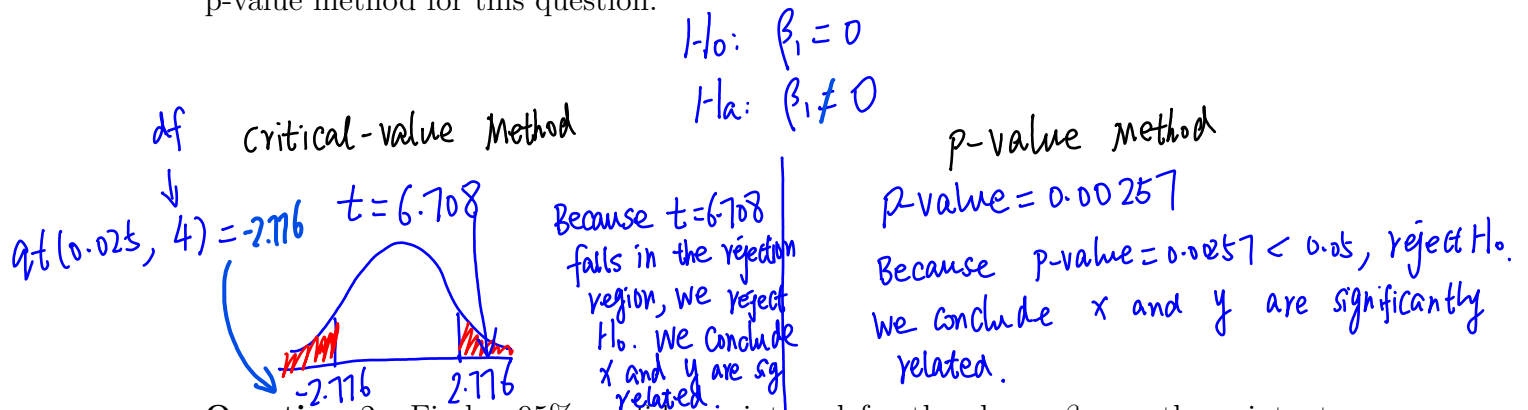 p-value method for this question.
H₀: β₁ = 0
Ha: β₁ ≠ 0
df
Critical-value Method
qt(0.025, 4) = -2.776
t = 6.708
-2.776
2.776
Because t=6.708
falls in the rejection
region, we reject
H₀. We conclude
x and y are sig
related
p-value Method
p-value = 0.00257
Because p-value = 0.00257 < 0.05, reject H₀.
we conclude x and y are significantly
related.